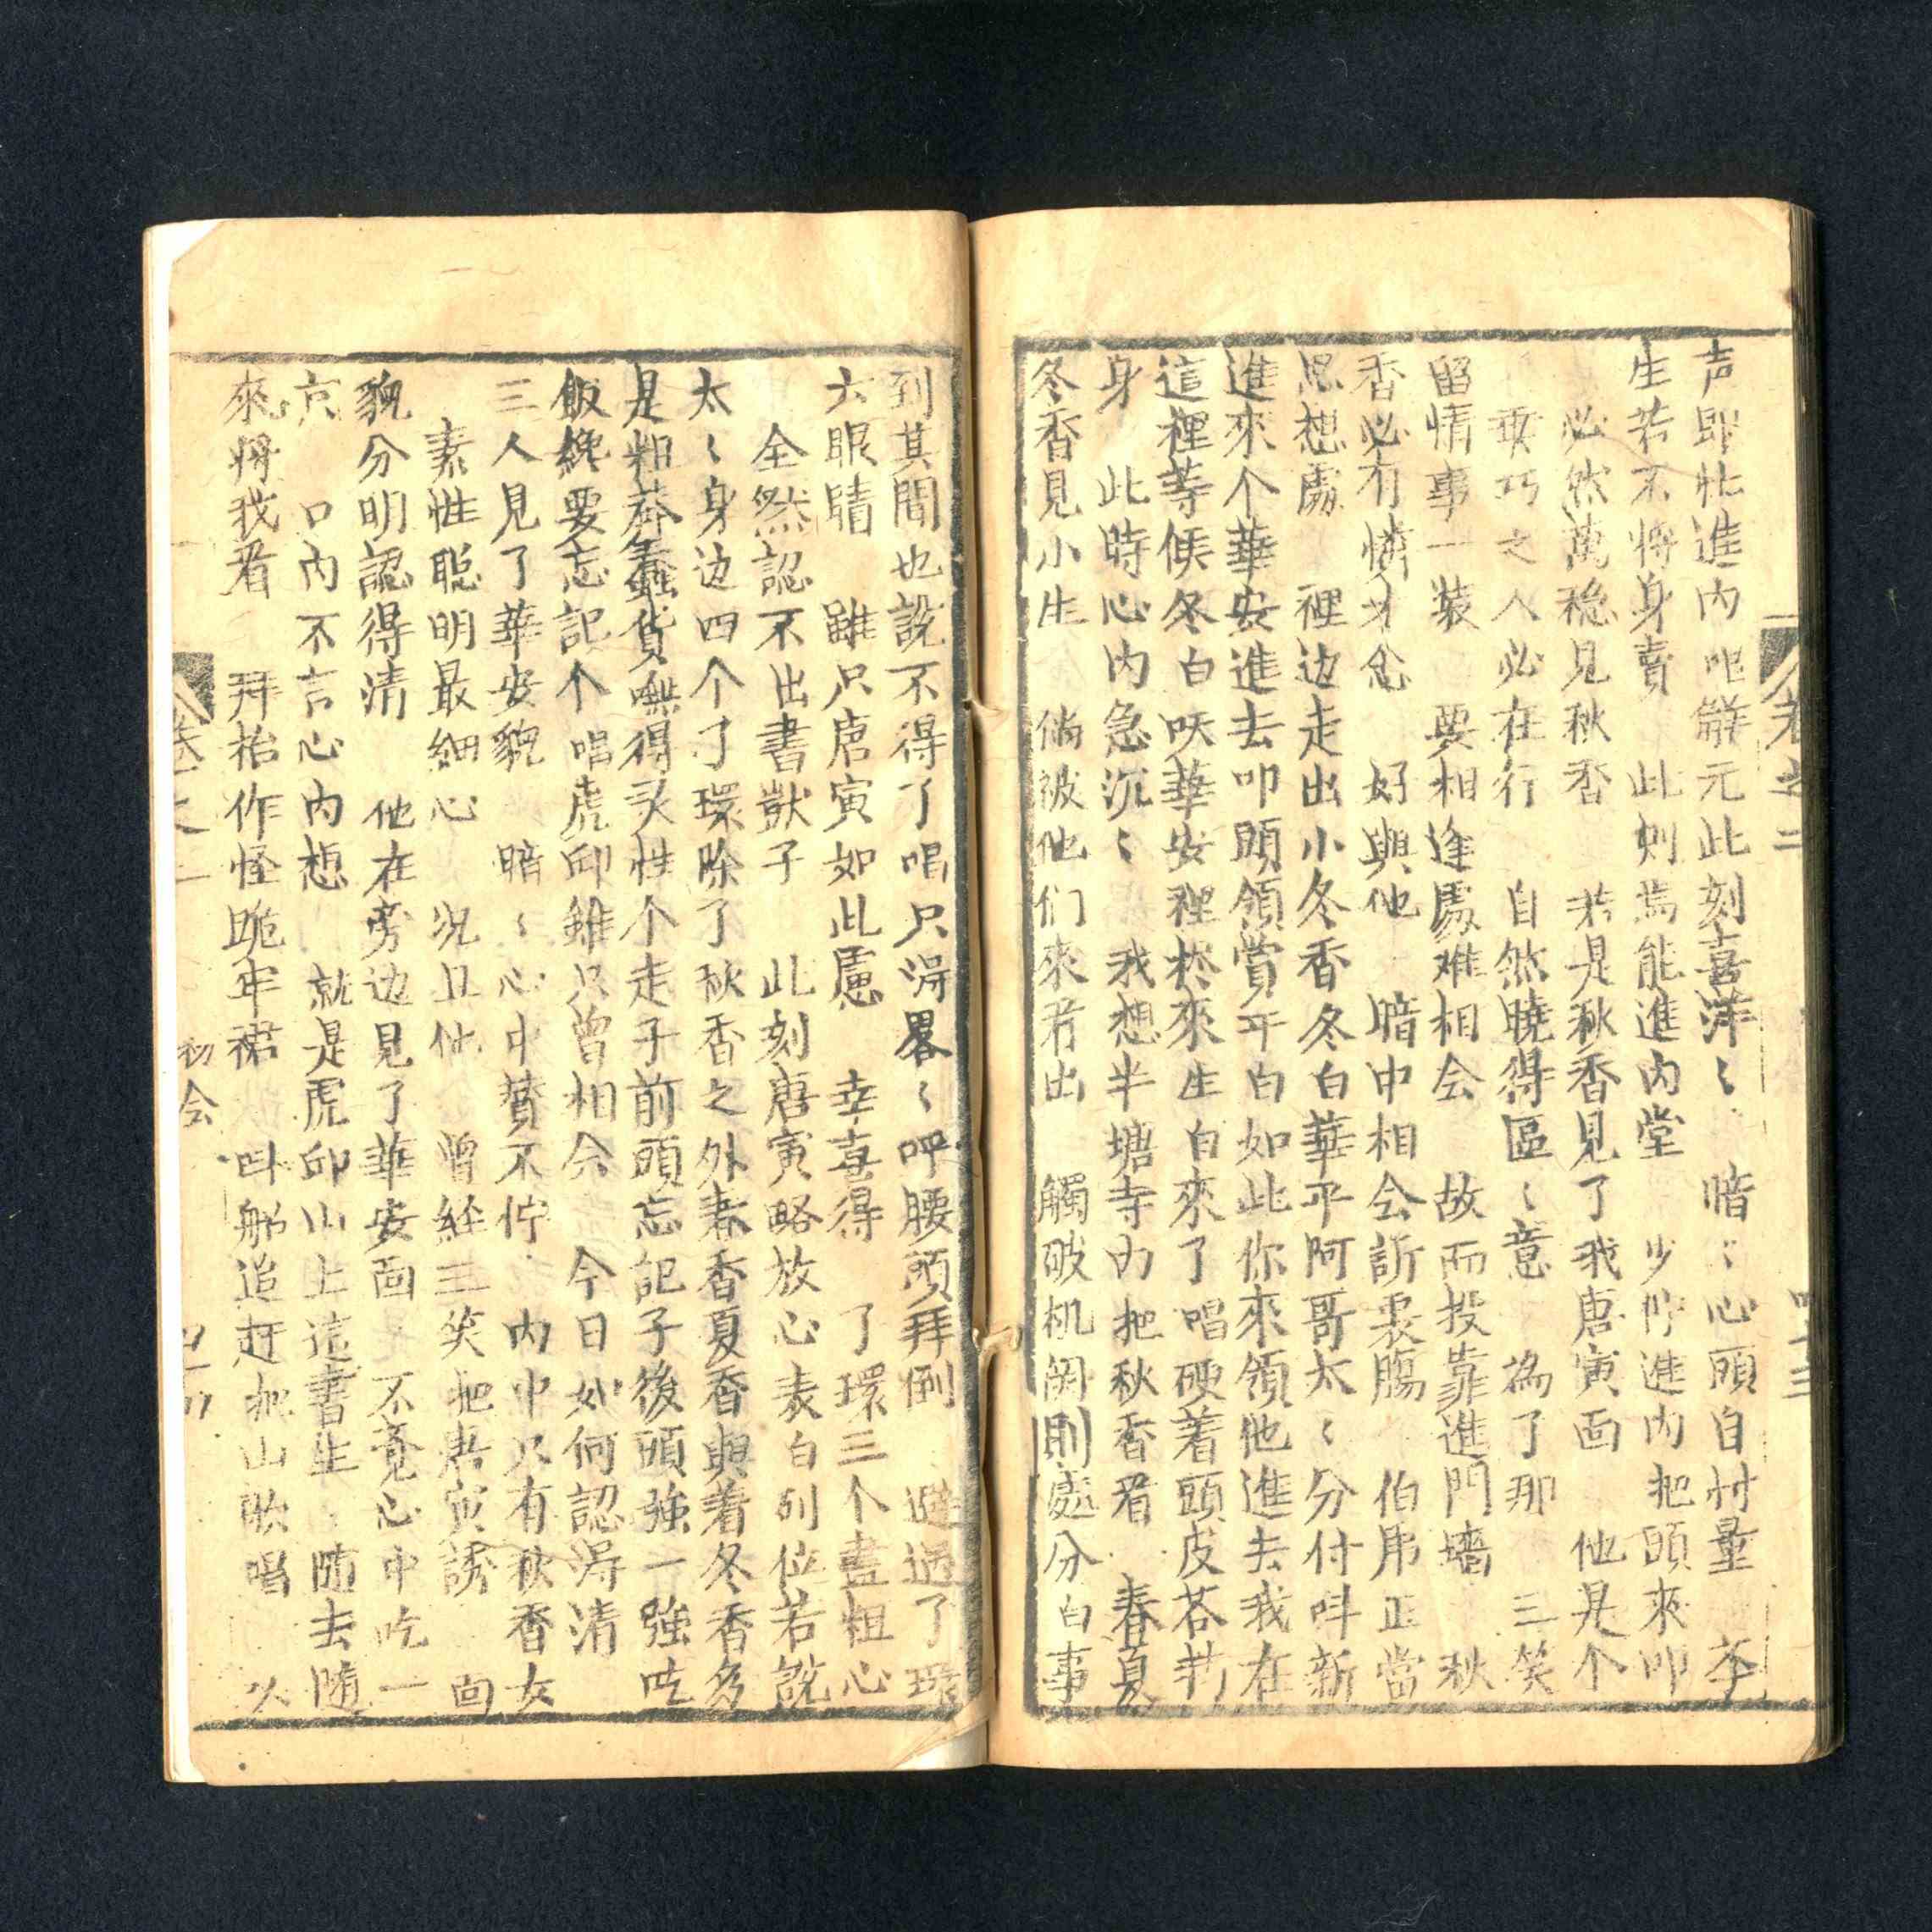 声即忙進內 觧元此刻喜洋〻 暗〻心頭自忖量
生若不將身賣 此刻焉能進內堂 少停進內把頭來叩
必然萬穏見秋香 若是秋香見了我唐寅面 他是个
乖巧之人必在行 自然曉得區〻意 為了那 三笑
留情事一裝 要相逢處难相会 故而投靠進門墻 秋
香必有憐才念 好與他 暗中相会訴衷腸 伯虎正當
思想處 裡边走出小冬香冬白華平阿哥太〻分付呌新
進來个華安進去叩頭領賞平白如此你來領他進去我在
這裡等候冬白呋華安裡於來生白來了唱硬着頭皮荅
身 此時心內急沉〻 我想半塘寺內把秋香看 春夏
冬香見小生 倘被他们來看出 觸破机関則處分白事
到其間也說不得了唱只淂畧〻呼腰頭拜倒 遮過了
六眼睛 雖只唐寅如此慮 幸喜得 了環三个盡粗心
全然認不出書獃子 此刻唐寅略放心表白列位若說
太〻身边四个了環除了秋香之外春香夏香與着冬香多
是粗莽蠢貨嘸得灵性个走子前頭忘記子後頭強一強吃
飯纔要忘記个唱虎邱雖只曾相会 今日如何認淂清
三人見了華安貌 暗〻心中賛不停 內中只有秋香女
素性聪明最細心 况且他 曾経三笑把唐寅誘 面
貌分明認得清 他在旁边見了華安面 不覺心中吃一
口內不言心內想 就是虎邱山上這書生 随去随
來將我看 拜枱作怪跪牢裙 呌船追赶把山歌唱 久
卷之二
初会